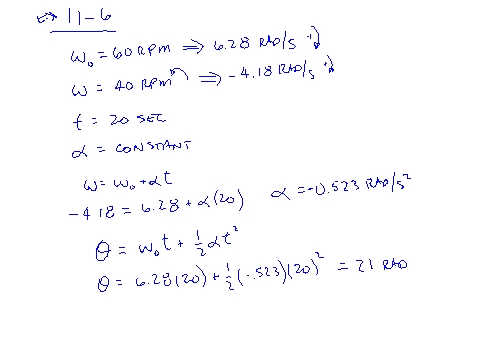 Ex 11-6
ω₀ = 60 RPM ⇒ 6.28 RAD/S +↓
ω = 40 RPM ⇒ -4.18 RAD/S +↓
t = 20 SEC
α = CONSTANT
ω = ω₀ + αt
-4.18 = 6.28 + α(20) α = -0.523 RAD/S²
θ = ω₀t + ½αt²
θ = 6.28(20) + ½(-.523)(20)² = 21 RAD